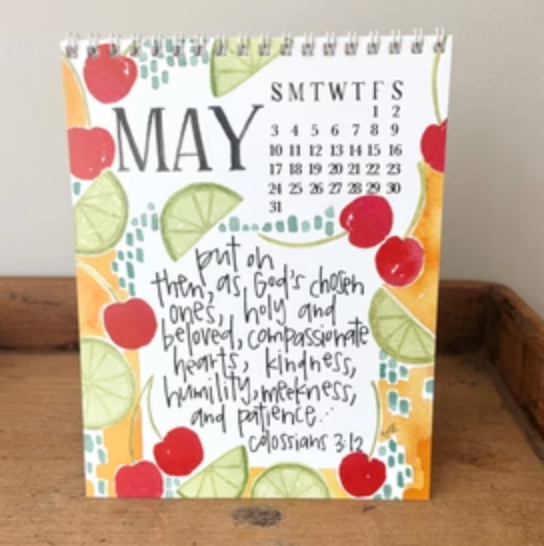 MAY
S M T W T F S
1 2
3 4 5 6 7 8 9
10 11 12 13 14 15 16
17 18 19 20 21 22 23
24 25 26 27 28 29 30
31
put on
then, as God's chosen
ones, holy and
beloved, compassionate
hearts, kindness,
humility, meekness,
and patience...
colossians 3:12